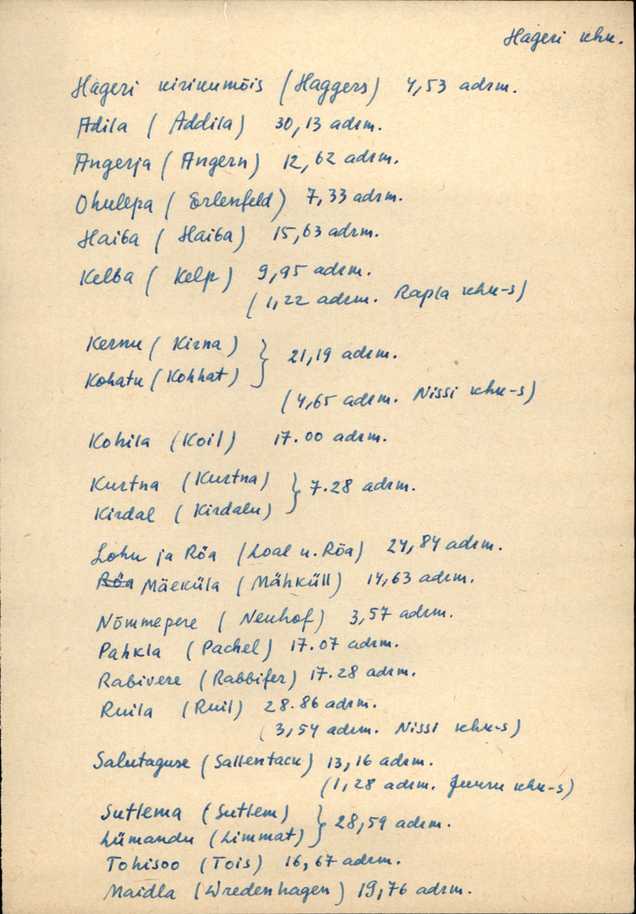 Hageri khk.
Hageri kirikumõis (Haggers) 4,53 adrm.
Adila (Addila) 30,13 adrm.
Angerja (Angern) 12,62 adrm.
Ohulepa (Erlenfeld) 7,33 adrm.
Haiba (Haiba) 15,63 adrm.
Kelba (Kelp) 9,95 adrm.
(1,22 adrm. Rapla khk-s)
Kernu (Kirna)
Kohatu (Kohhat) } 21,19 adrm.
(4,65 adrm. Nissi khk-s)
Kohila (Koil) 17.00 adrm.
Kurtna (Kurtna)
Kirdal (Kirdalu) } 7.28 adrm.
Lohu ja Rõa (Loal u. Rõa) 24,84 adrm.
Rõa Mäeküla (Mähküll) 14,63 adrm.
Nõmmepere (Neuhof) 3,57 adrm.
Pahkla (Pachel) 17.07 adrm.
Rabivere (Rabbifer) 17.28 adrm.
Ruila (Ruil) 28.86 adrm.
(3,54 adrm. Nissi khk-s)
Salutaguse (Sallentack) 13,16 adrm.
(1,28 adrm. Juuru khk-s)
Sutlema (Sutlem)
Lümandu (Limmat) } 28,59 adrm.
Tohisoo (Tois) 16,67 adrm.
Maidla (Wredenhagen) 19,76 adrm.